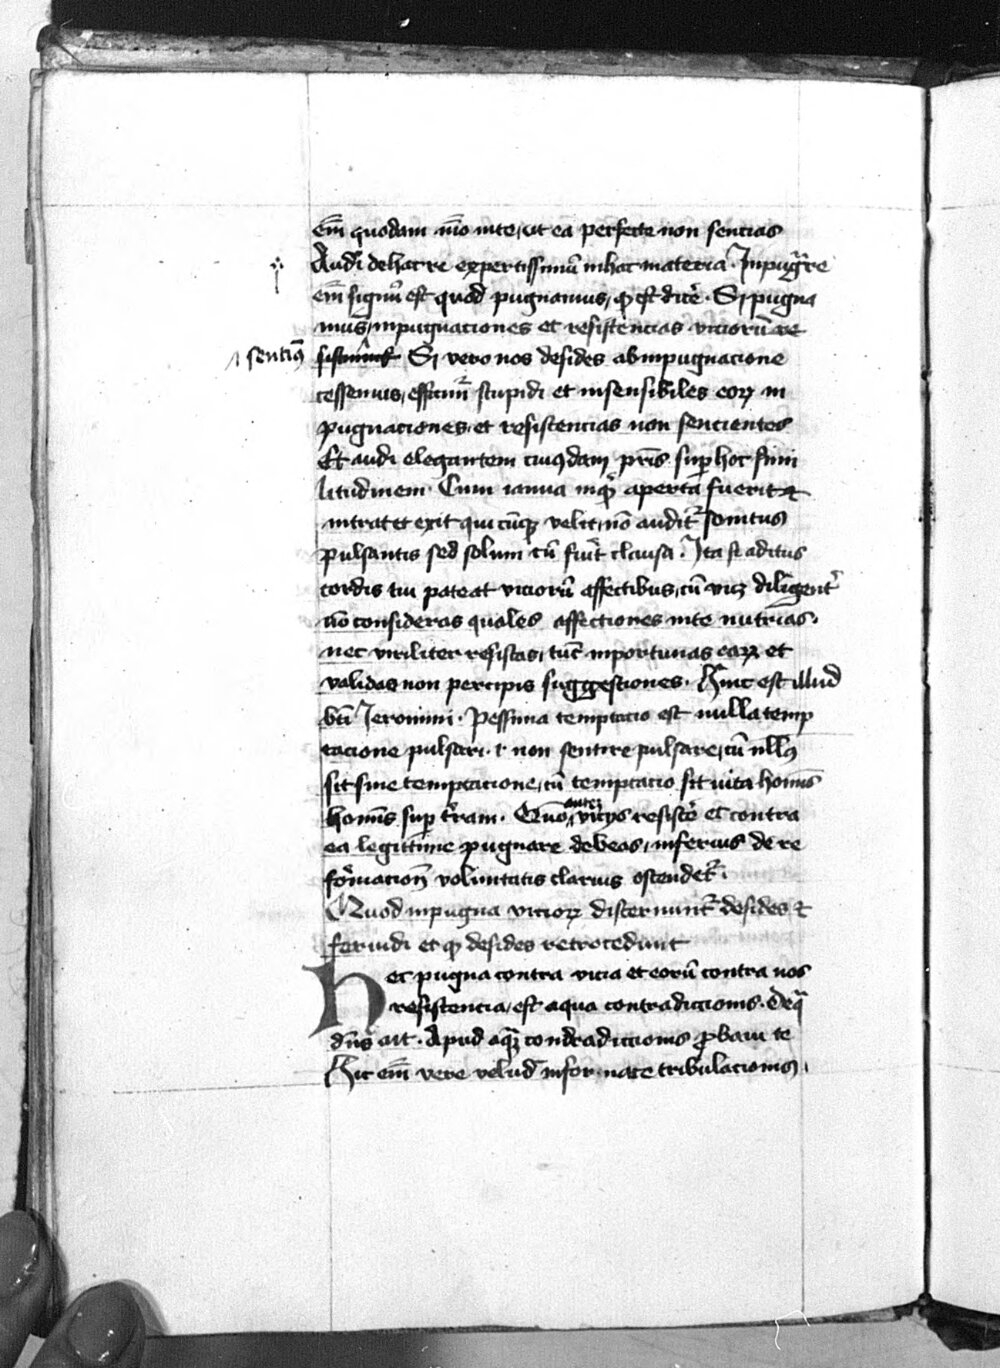 em̄ quodam mo͞ in te, ut ea perfecte non sentias
Audi de hac re expertissimū in hac materia. Inpugr̄e
em̄ signū est quod pugnamus, qͥ est dicē. Si pugna
mus, inpugnaciones et resistencias viciorū re
sentimꝰ
Si vero nos desides ab inpugnacione
cessemus, efficimr̄ stupidi et insensibiles eoꝝ in
pugnaciones, et resistencias non sencientes
Et audi elegantem cuiusdam pr̄is sup̄ hoc simi
litudinem. Cum ianua inqͥ aperta fuerit et
intrat et exit qui cūqꝫ velit, nō auditͬ sonitus
pulsantis sed solum cū fuīt clausa. Ita si aditus
cordis tui pateat viciorū affectibus, cū diligent̄
nō consideras quales affectiones in te nutrias.
nec viriliter resistas, tūc inportunas eaꝝ et
validas non percipis suggestiones. Hinc est illud
bt̄i Jeronimi. Pessima temptacio est nulla temp
tacione pulsari. et non sentire pulsare, cū nllꝰ
sit sine temptacione, cū temptacio sit vita homīs
homīs sup̄ t̄ram. Quō autē vicijs resistē et contra
ea legittime pugnare debeas, inferius de re
formacioñ voluntatis clarius ostendet̄.
Quod in pugna vicioꝝ discernunt̄ desides et
feruidi et qͥ desides retrocedunt
Hec pugna contra vicia et eorū contra nos
resistencia, est aqua contradiccionis. de qͣ
dn̄s ait. Apud aquā condradiccionis ꝓbaui te
Hic em̄ vere velud in fornace tribulacionis,